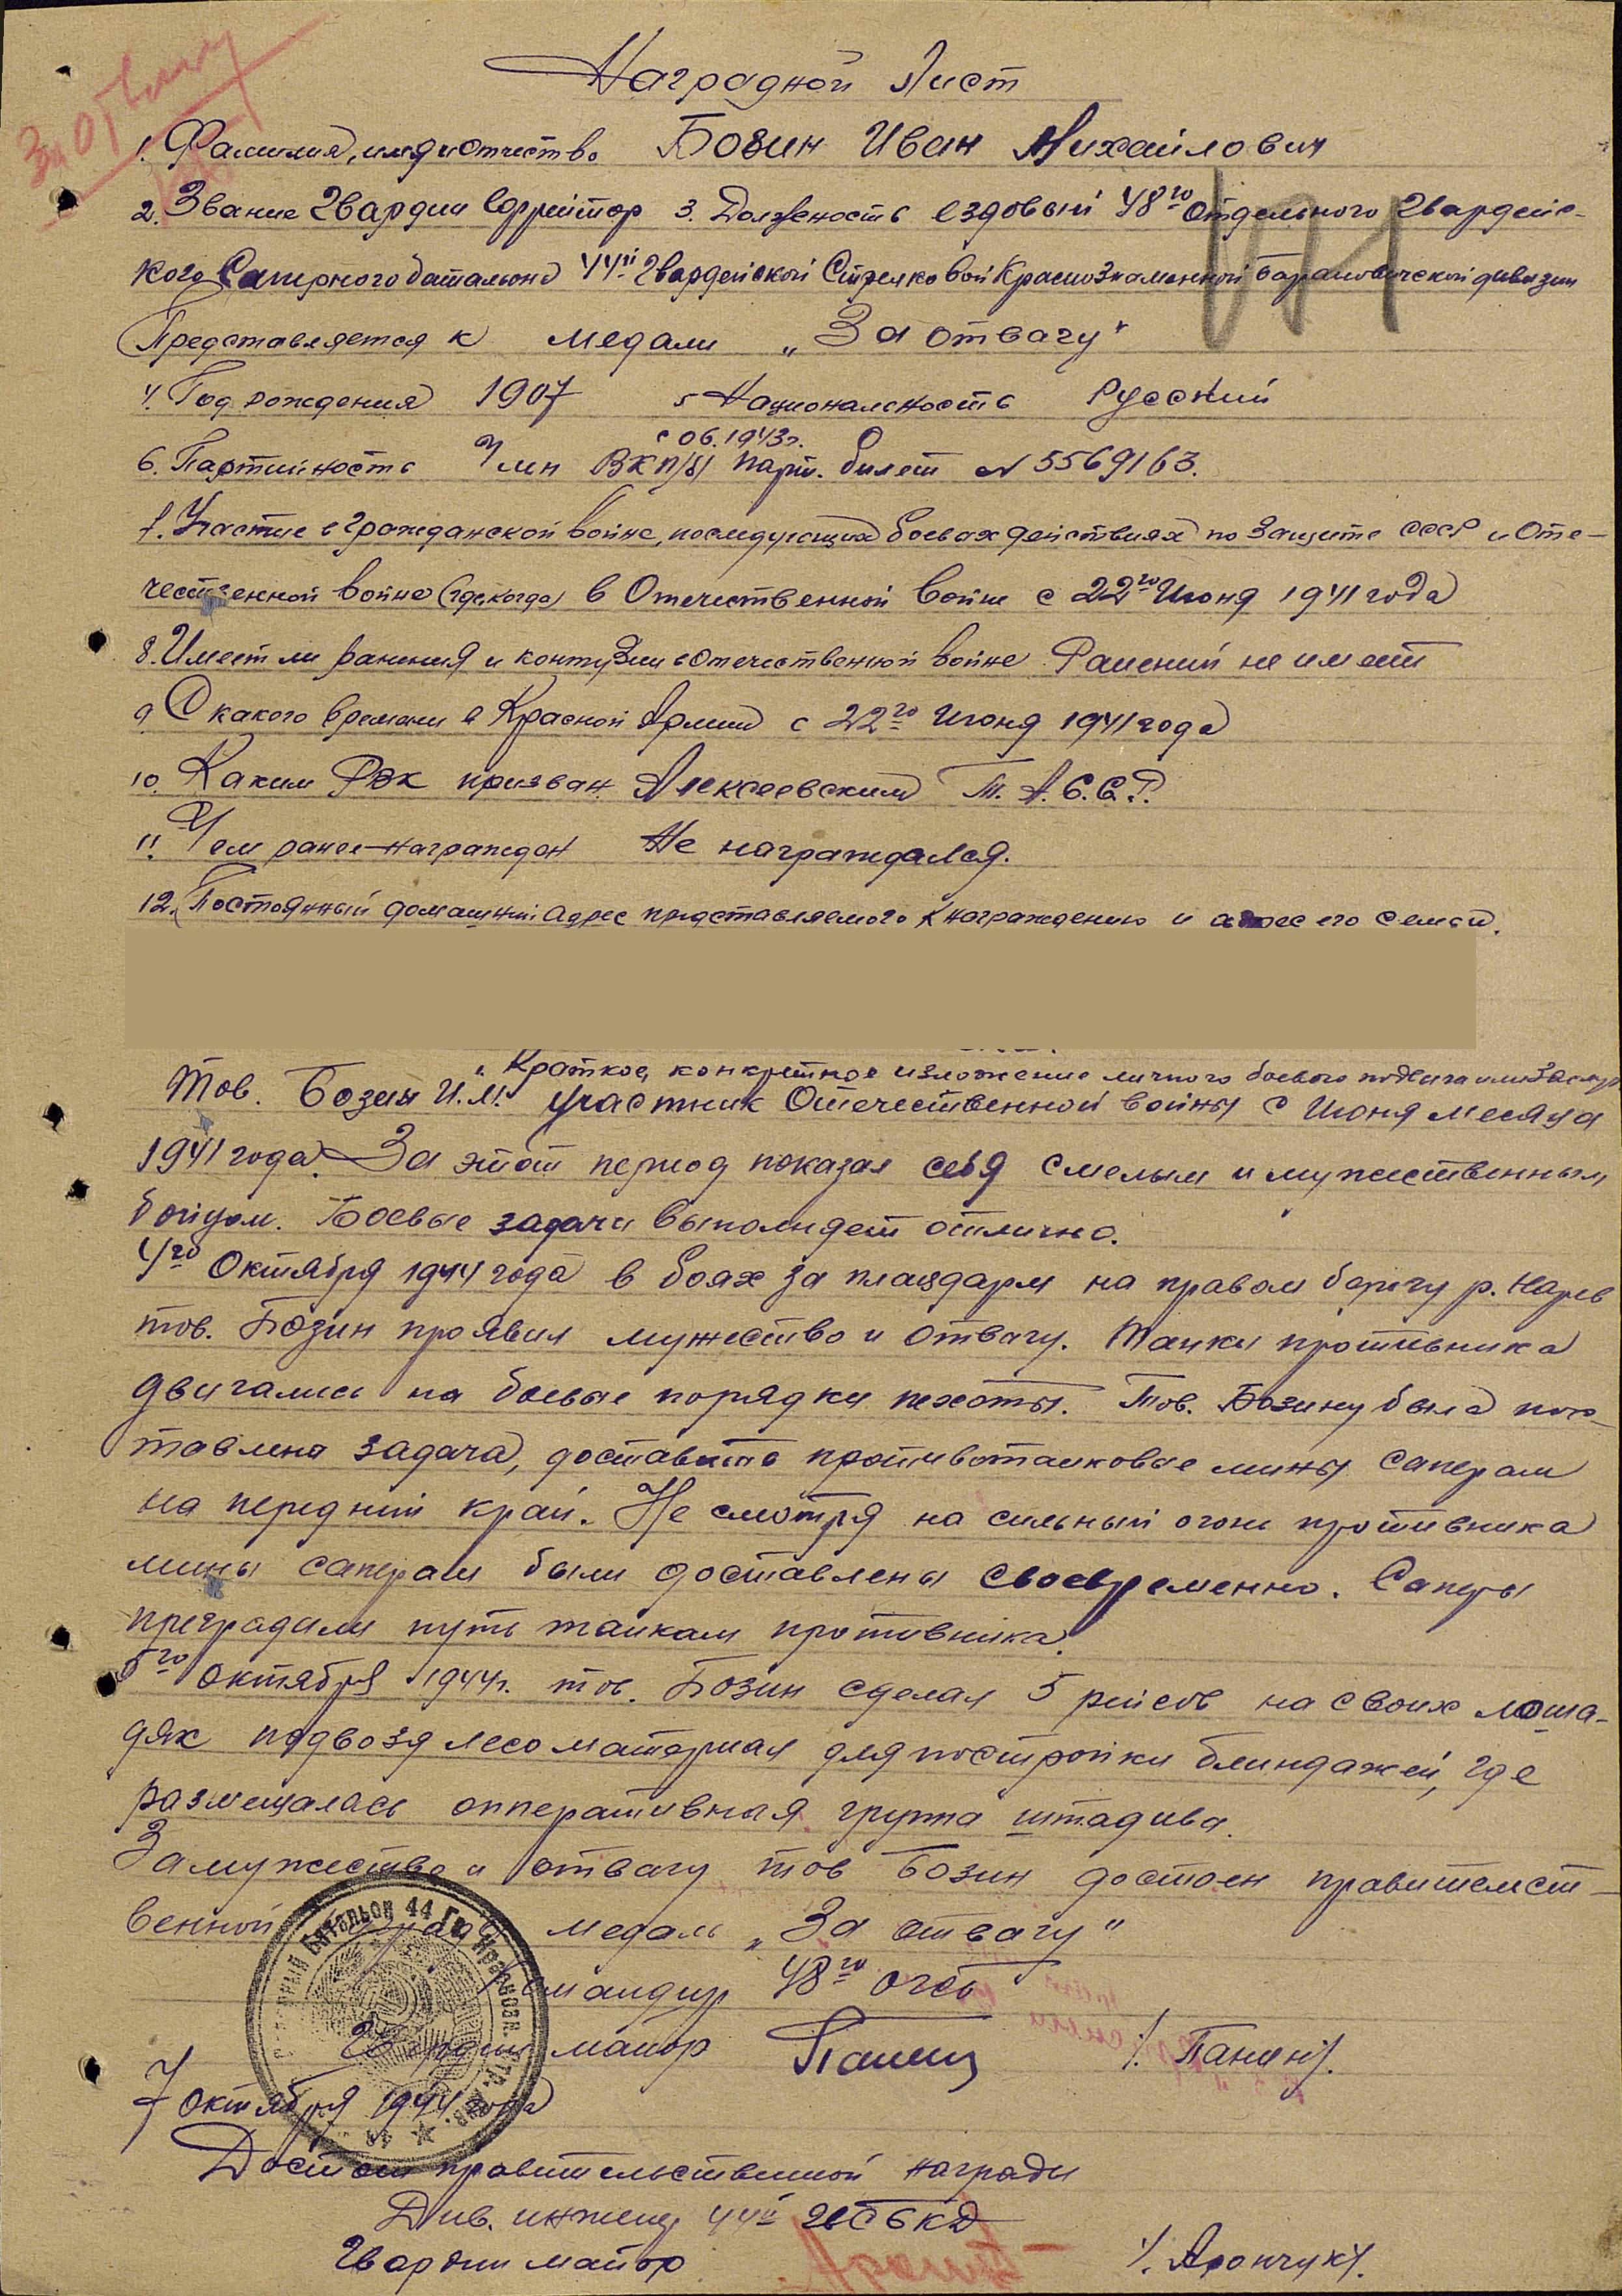 За отвагу
Наградной Лист
1. Фамилия, имя и отчество Бозин Иван Михайлович
2. Звание Гвардии Ефрейтор 3. Должность ездовый 48го отдельного Гвардейс-
кого Саперного баталиона 44й Гвардейской Стрелковой Краснознаменной Барановической дивизии
Представляется к медали „За отвагу"
4. Год рождения 1907 5 Национальность Русский
с 06.1943г.
6. Партийность Член ВКП/б/ парт. билет N 5569163.
7. Участие в гражданской войне, последующих боевах действиях по защите СССР и Оте-
чественной войне (где, когда) в Отечественной войне с 22го Июня 1941 года
8. Имеет ли ранения и контузии в отечественной войне Ранений не имеет
9 С какого времени в Красной Армии с 22го Июня 1941 года
10. Каким РВК призван Алексеевским Т.А.С.С.Р.
11. Чем ранее награжден Не награждался.
12. Постоянный домашний адрес представляемого к награждению и адрес его семьи.
Краткое, конкретное изложение личного боевого подвига или заслуг
Тов. Бозин И.М. участник Отечественной войны с Июня месяца
1941 года. За этот период показал себя смелым и мужественным
бойцом. Боевые задачи выполняет отлично.
4го Октября 1944 года в боях за плацдарм на правом берегу р. Нарев
тов. Бозин проявил мужество и отвагу. Танки противника
двигались на боевые порядки пехоты. Тов. Бозину была пос-
тавлена задача, доставить противотанковые мины саперам
на передний край. Не смотря на сильный огонь противника
мины саперам были доставлены своевременно. Саперы
преградили путь танкам противника.
5го октября 1944г. тов. Бозин сделал 5 рейсов на своих лоша-
дях подвозя лесоматериал для постройки блиндажей, где
размещалась опперативная группа штадива.
За мужество и отвагу тов Бозин достоен правительст-
венной медаль „За отвагу"
Командир 48го огсб
Гвардии майор Панин /. Панин/.
7 октября 1944 года
Батальон 44 Гв. Краснозн. Стр. див.
Достоин правительственной награды
Див. инженер 44й ГвСБКД
Гвардии майор /. Арончук/.